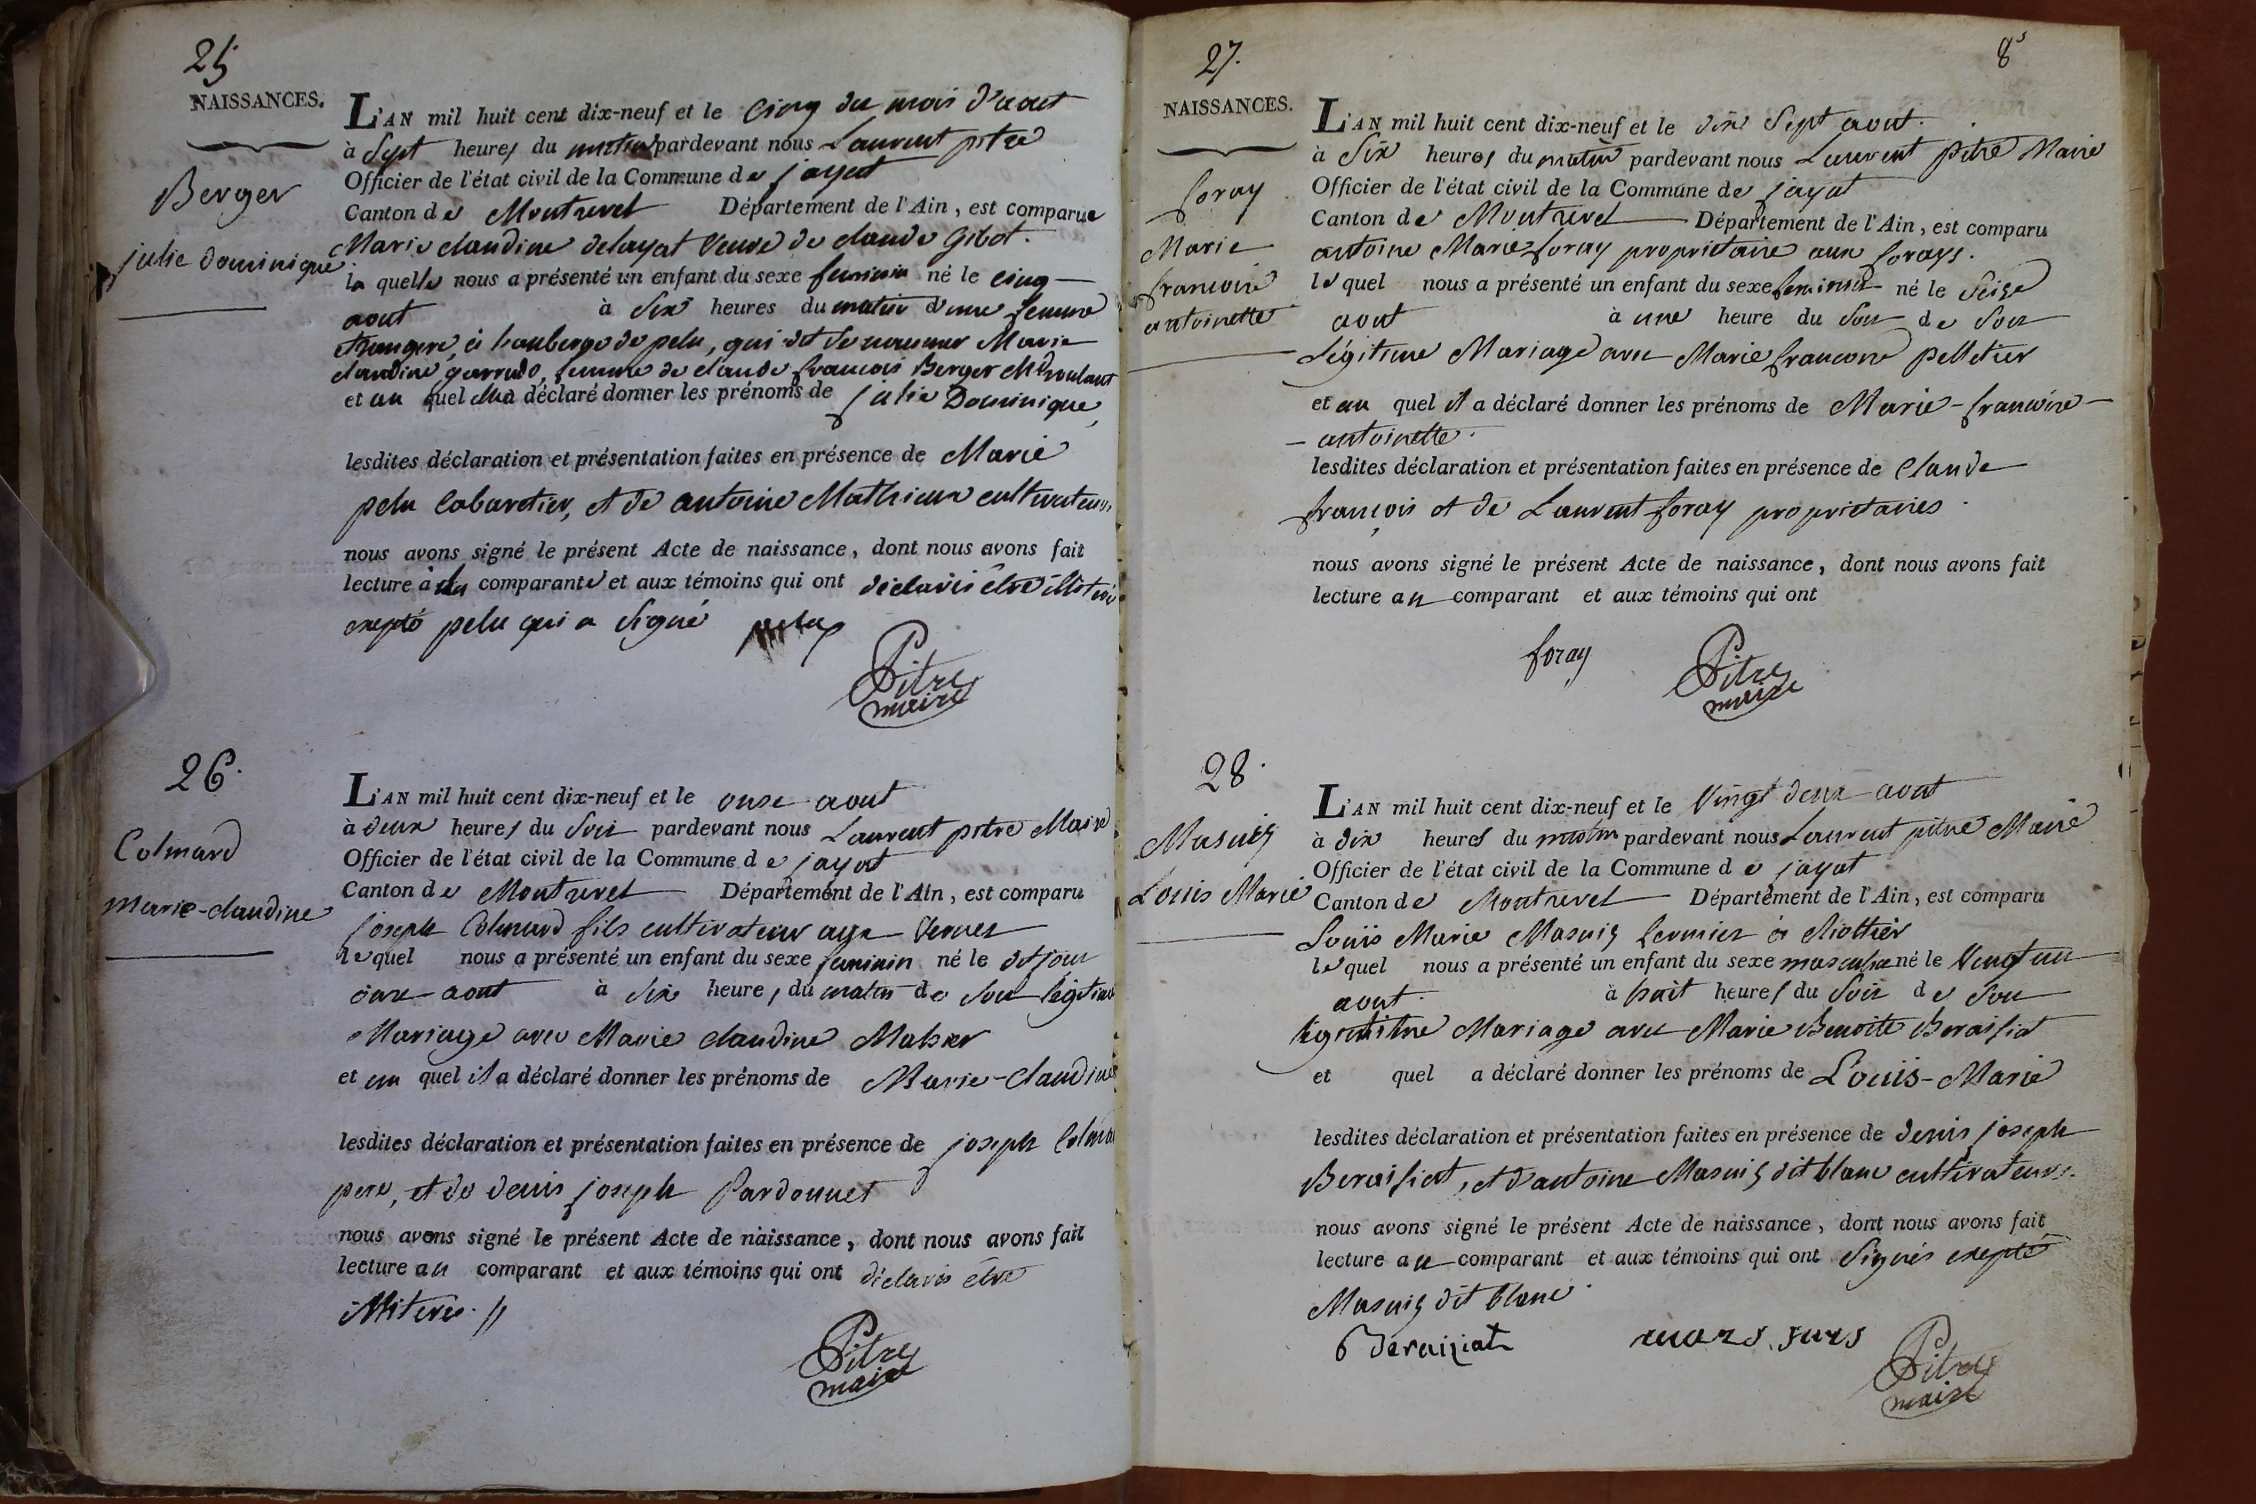 25
NAISSANCES.
Berger
julie dominique
L'AN mil huit cent dix-neuf et le cinq du mois d'aout
à Sept heures du matin pardevant nous Laurent pitre
Officier de l'état civil de la Commune de jayat
Canton de Montrevel Département de l'Ain, est comparue
Marie claudine delayat veuve de claude Gibot.
la quelle nous a présenté un enfant du sexe feminin né le cinq
aout à Six heures du matin d'une femme
etrangere, à l'auberge de pelu, qui dit se nommer Marie
claudine, femme de claude françois Berger Md roulant
et au quel elle a déclaré donner les prénoms de julie Dominique,
lesdites déclaration et présentation faites en présence de Marie
pelu Cabaretier, et de antoine Mathieux cultivateurs
nous avons signé le présent Acte de naissance, dont nous avons fait
lecture à la comparante et aux témoins qui ont déclarés être illiterés
exepté pelu qui a Signé pelu
Pitre
maire
26.
Colmard
marie-claudine
L'AN mil huit cent dix-neuf et le onze aout
à deux heures du Soir pardevant nous Laurent pitre Maire
Officier de l'état civil de la Commune de jayat
Canton de Montrevel Département de l'Ain, est comparu
joseph Colmard fils cultivateur aux Vernes
le quel nous a présenté un enfant du sexe feminin né le dit jour
onze aout à Six heures du matin de Son légitime
Mariage avec Marie claudine
et au quel il a déclaré donner les prénoms de Marie-Claudine
lesdites déclaration et présentation faites en présence de joseph Colmard
pere, et de denis joseph Pardonnet
nous avons signé le présent Acte de naissance, dont nous avons fait
lecture au comparant et aux témoins qui ont déclarés être
illiterés.
Pitre
maire
27.
8
NAISSANCES.
foray
Marie
francoise
antoinette
L'AN mil huit cent dix-neuf et le dix Sept aout.
à Six heures du matin pardevant nous Laurent Pitre Maire
Officier de l'état civil de la Commune de jayat
Canton de Montrevel Département de l'Ain, est comparu
antoine Marie foray proprietaire aux forays.
le quel nous a présenté un enfant du sexe feminin né le Seize
aout à une heure du Soir de Son
Légitime Mariage avec Marie francoise pelletier
et au quel il a déclaré donner les prénoms de Marie-francoise-
- antoinette.
lesdites déclaration et présentation faites en présence de Claude
françois et de Laurent foray proprietaires.
nous avons signé le présent Acte de naissance, dont nous avons fait
lecture au comparant et aux témoins qui ont
foray
Pitre
maire
28.
Masuis
Louis Marie
L'AN mil huit cent dix-neuf et le Vingt deux aout
à dix heures du matin pardevant nous Laurent pitre Maire
Officier de l'état civil de la Commune de jayat
Canton de Montrevel Département de l'Ain, est comparu
Louis Marie Masuis fermier à
le quel nous a présenté un enfant du sexe masculin né le Vingt un
aout. à huit heures du Soir de Son
légitime Mariage avec Marie Benoite Beraisiat
et quel a déclaré donner les prénoms de Louis-Marie
lesdites déclaration et présentation faites en présence de denis joseph
Beraisiat, et d'antoine Masuis dit blanc cultivateurs.
nous avons signé le présent Acte de naissance, dont nous avons fait
lecture au comparant et aux témoins qui ont Signés exepté
Masuis dit blanc.
Beraiziat
Pitre
maire